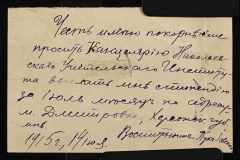 Честь имѣю покорнѣйше
просить Канцелярію Николаев
скаго Учительскаго Институ
та выслать мнѣ стипендію
за Іюль мѣсяцъ по адресу:
м. Дмитровка, Херсонск. губ.
1915 г. 19 Іюля Воспитанникъ